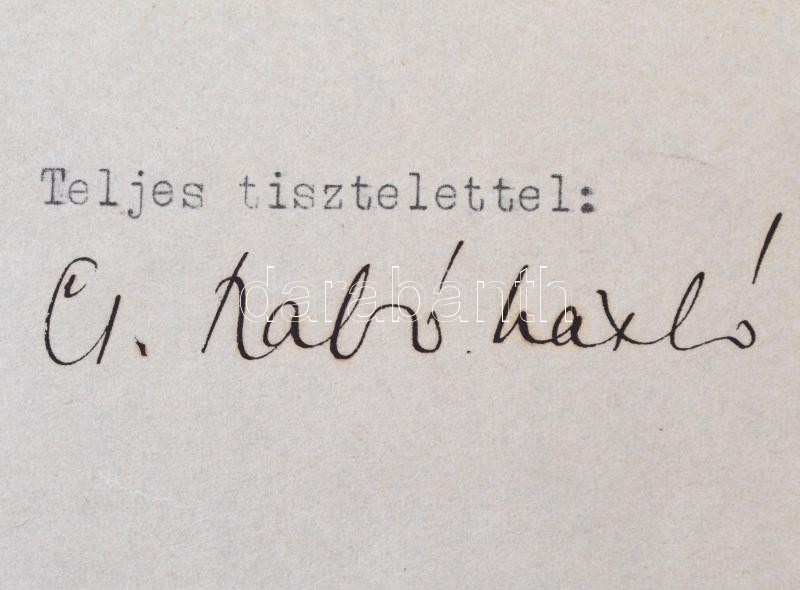 Teljes tisztelettel:
Cs. Szabó László
darabanth